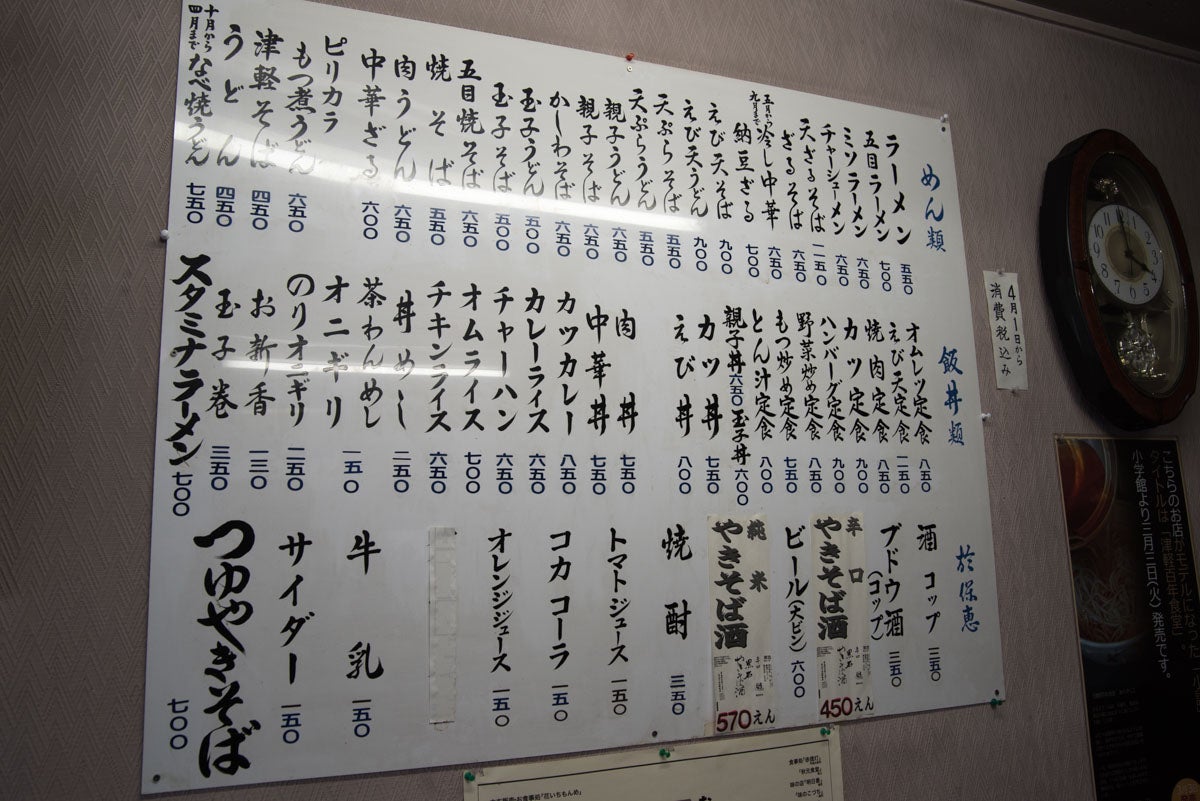 めん類
ラーメン 五五〇
五目ラーメン 七〇〇
ミソラーメン 六五〇
チャーシューメン 六五〇
天ざるそば 一一五〇
ざるそば 六五〇
五月から九月まで 冷し中華 六五〇
納豆ざる 七〇〇
えび天そば 九〇〇
えび天うどん 九〇〇
天ぷらそば 五五〇
天ぷらうどん 五五〇
親子うどん 六五〇
親子そば 六五〇
かしわそば 六五〇
玉子うどん 五〇〇
玉子そば 五〇〇
五目焼そば 六五〇
焼そば 五五〇
肉うどん 六五〇
中華ざる 六〇〇
ピリカラ
もつ煮うどん 六五〇
津軽そば 四五〇
うどん 四五〇
十月から四月まで なべ焼うどん 七五〇
飯丼類
オムレツ定食 八五〇
えび天定食 一一五〇
焼肉定食 八五〇
カツ定食 九〇〇
ハンバーグ定食 九〇〇
野菜炒め定食 八五〇
もつ炒め定食 七五〇
とん汁定食 八〇〇
親子丼 六五〇 玉子丼 六〇〇
カツ丼 七五〇
えび丼 八〇〇
肉丼 七五〇
中華丼 七五〇
カツカレー 八五〇
カレーライス 六五〇
チャーハン 六五〇
オムライス 七〇〇
チキンライス 六五〇
丼めし 二五〇
茶わんめし
オニギリ 一五〇
のりオニギリ 二五〇
お新香 一三〇
玉子巻 三五〇
スタミナラーメン 七〇〇
於保恵
酒 コップ 三五〇
ブドウ酒(コップ) 三五〇
辛口
やきそば酒
450えん
ビール(大ビン) 六〇〇
純米
やきそば酒
570えん
焼酎 三五〇
トマトジュース 一五〇
コカコーラ 一五〇
オレンジジュース 一五〇
牛乳 一五〇
サイダー 一五〇
つゆやきそば 七〇〇
4月1日から
消費税込み
こちらのお店がモデルになった
タイトルは「津軽百年食堂」。
小学館より二月二日(火)発売です。